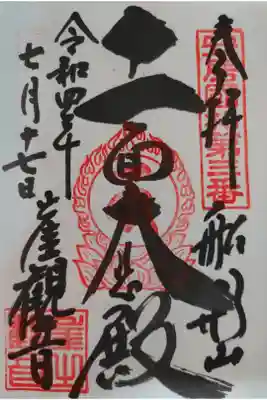 奉拝
第三番
船形山
十一面大悲殿
令和四年
七月十七日
崖觀音